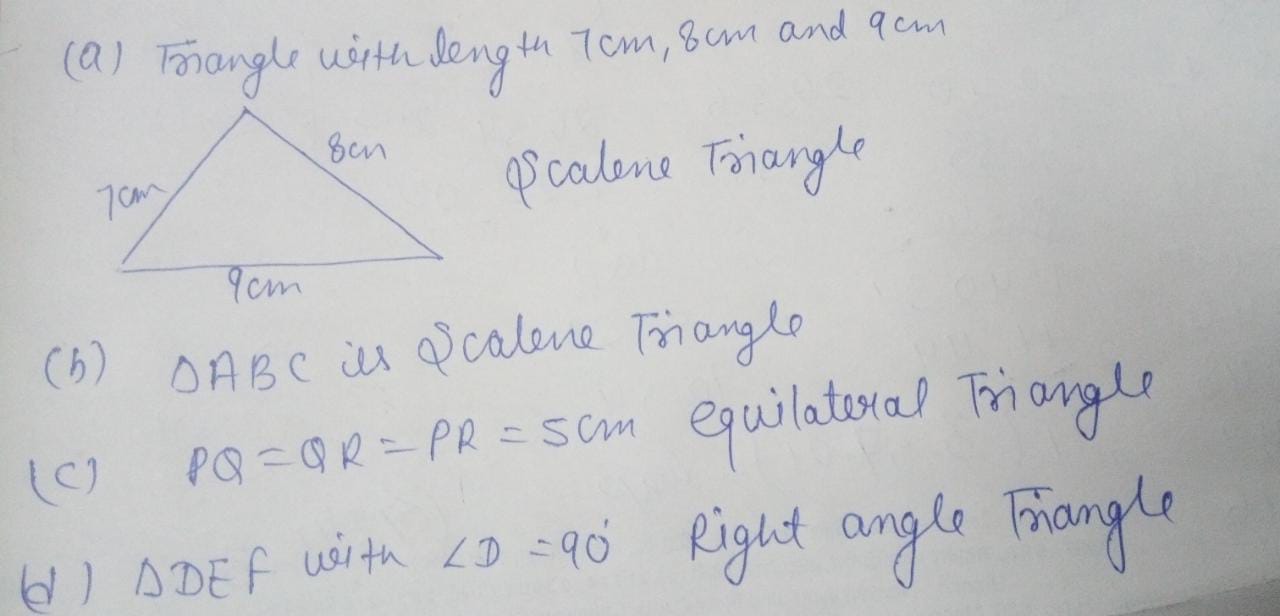 (a) Triangle with length 7cm, 8cm and 9cm
8cm
7cm
Scalene Triangle
9cm
(b) △ABC is Scalene Triangle
(c) PQ = QR = PR = 5cm equilateral Triangle
(d) △DEF with ∠D = 90° Right angle Triangle